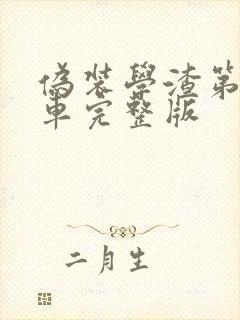 偽裝學渣第
車完整版
二月生